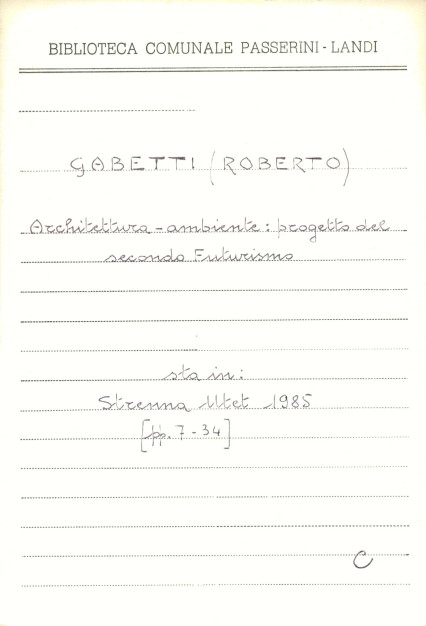 BIBLIOTECA COMUNALE PASSERINI-LANDI
GABETTI (ROBERTO)
Architettura - ambiente: progetto del
secondo Futurismo
sta in:
Strenna Utet 1985
[pp. 7-34]
C